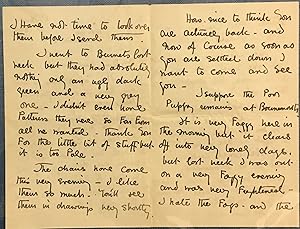 I have not time to look over
them before I send them
I went to Bennets last
week but they had absolutely
nothing only an ugly dark
green and a very grey
one - I didn't even have
Patterns they were so far from
all we wanted - thank you
for the little bit of stuff but
it is too Pale.
The chairs have come
this very evening - I like
them so much. You'll see
them in drawings very shortly.
How nice to think you
are actually back - and
now of course as soon as
you are settled down I
want to come and see
you -
I suppose the Poor
Puppy remains at
It is very Foggy here in
the morning but it clears
off into very lovely days.
but last week I was out
on a very Foggy evening
and was very frightened -
I hate the Fogs - and the